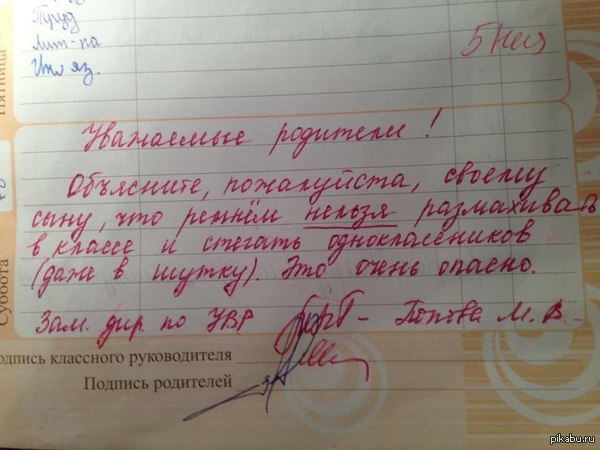 Пятница
Труд
Лит-ра
Ин яз.
5
Уважаемые родители!
Объясните, пожалуйста, своему
сыну, что ремнём нельзя размахивать
в классе и стегать одноклассников
(даже в шутку). Это очень опасно.
Суббота
Зам. дир. по УВР Попова М. В.
одпись классного руководителя
Подпись родителей
pikabu.ru